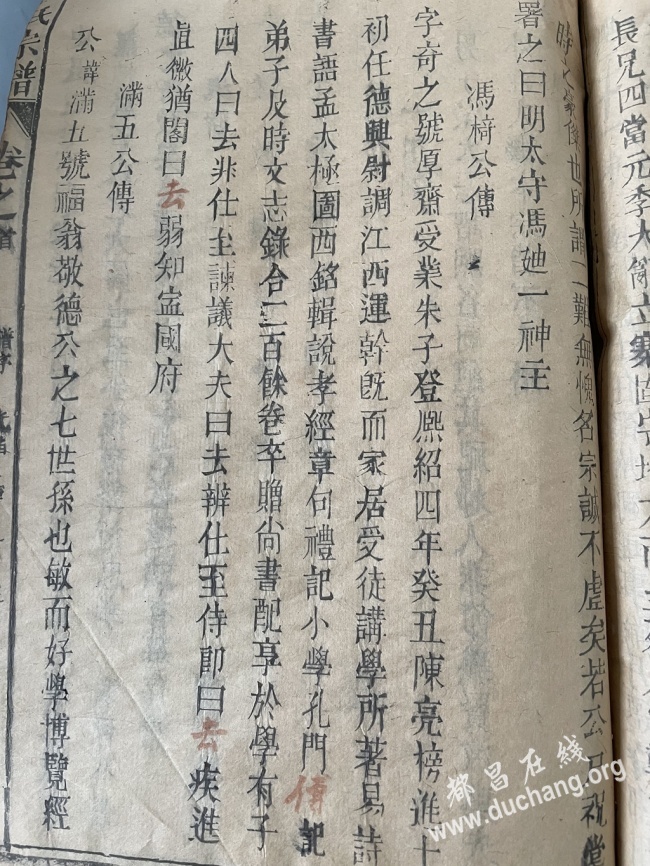 長兄四當元季大亂立寨
時之豪傑也所謂二難無愧名宗誠不虛矣若公
署之曰明太守馮廸一神主
馮椅公傳
字奇之號厚齋受業朱子登熈紹四年癸丑陳亮榜進士
初任德興尉調江西運幹旣而家居受徒講學所著易詩
書語孟太極圖西銘輯說孝經章句禮記小學孔門傳記
弟子及時文志錄合二百餘卷卒贈尚書配享於學有子
四人曰去非仕至諫議大夫曰去辨仕至侍郎曰去疾進
直徽猶閣曰去弱知寍國府
滿五公傳
公諱滿五號福翁敬德公之七世孫也敏而好學博覽經
氏宗譜
卷之首
都昌在线
www.duchang.org